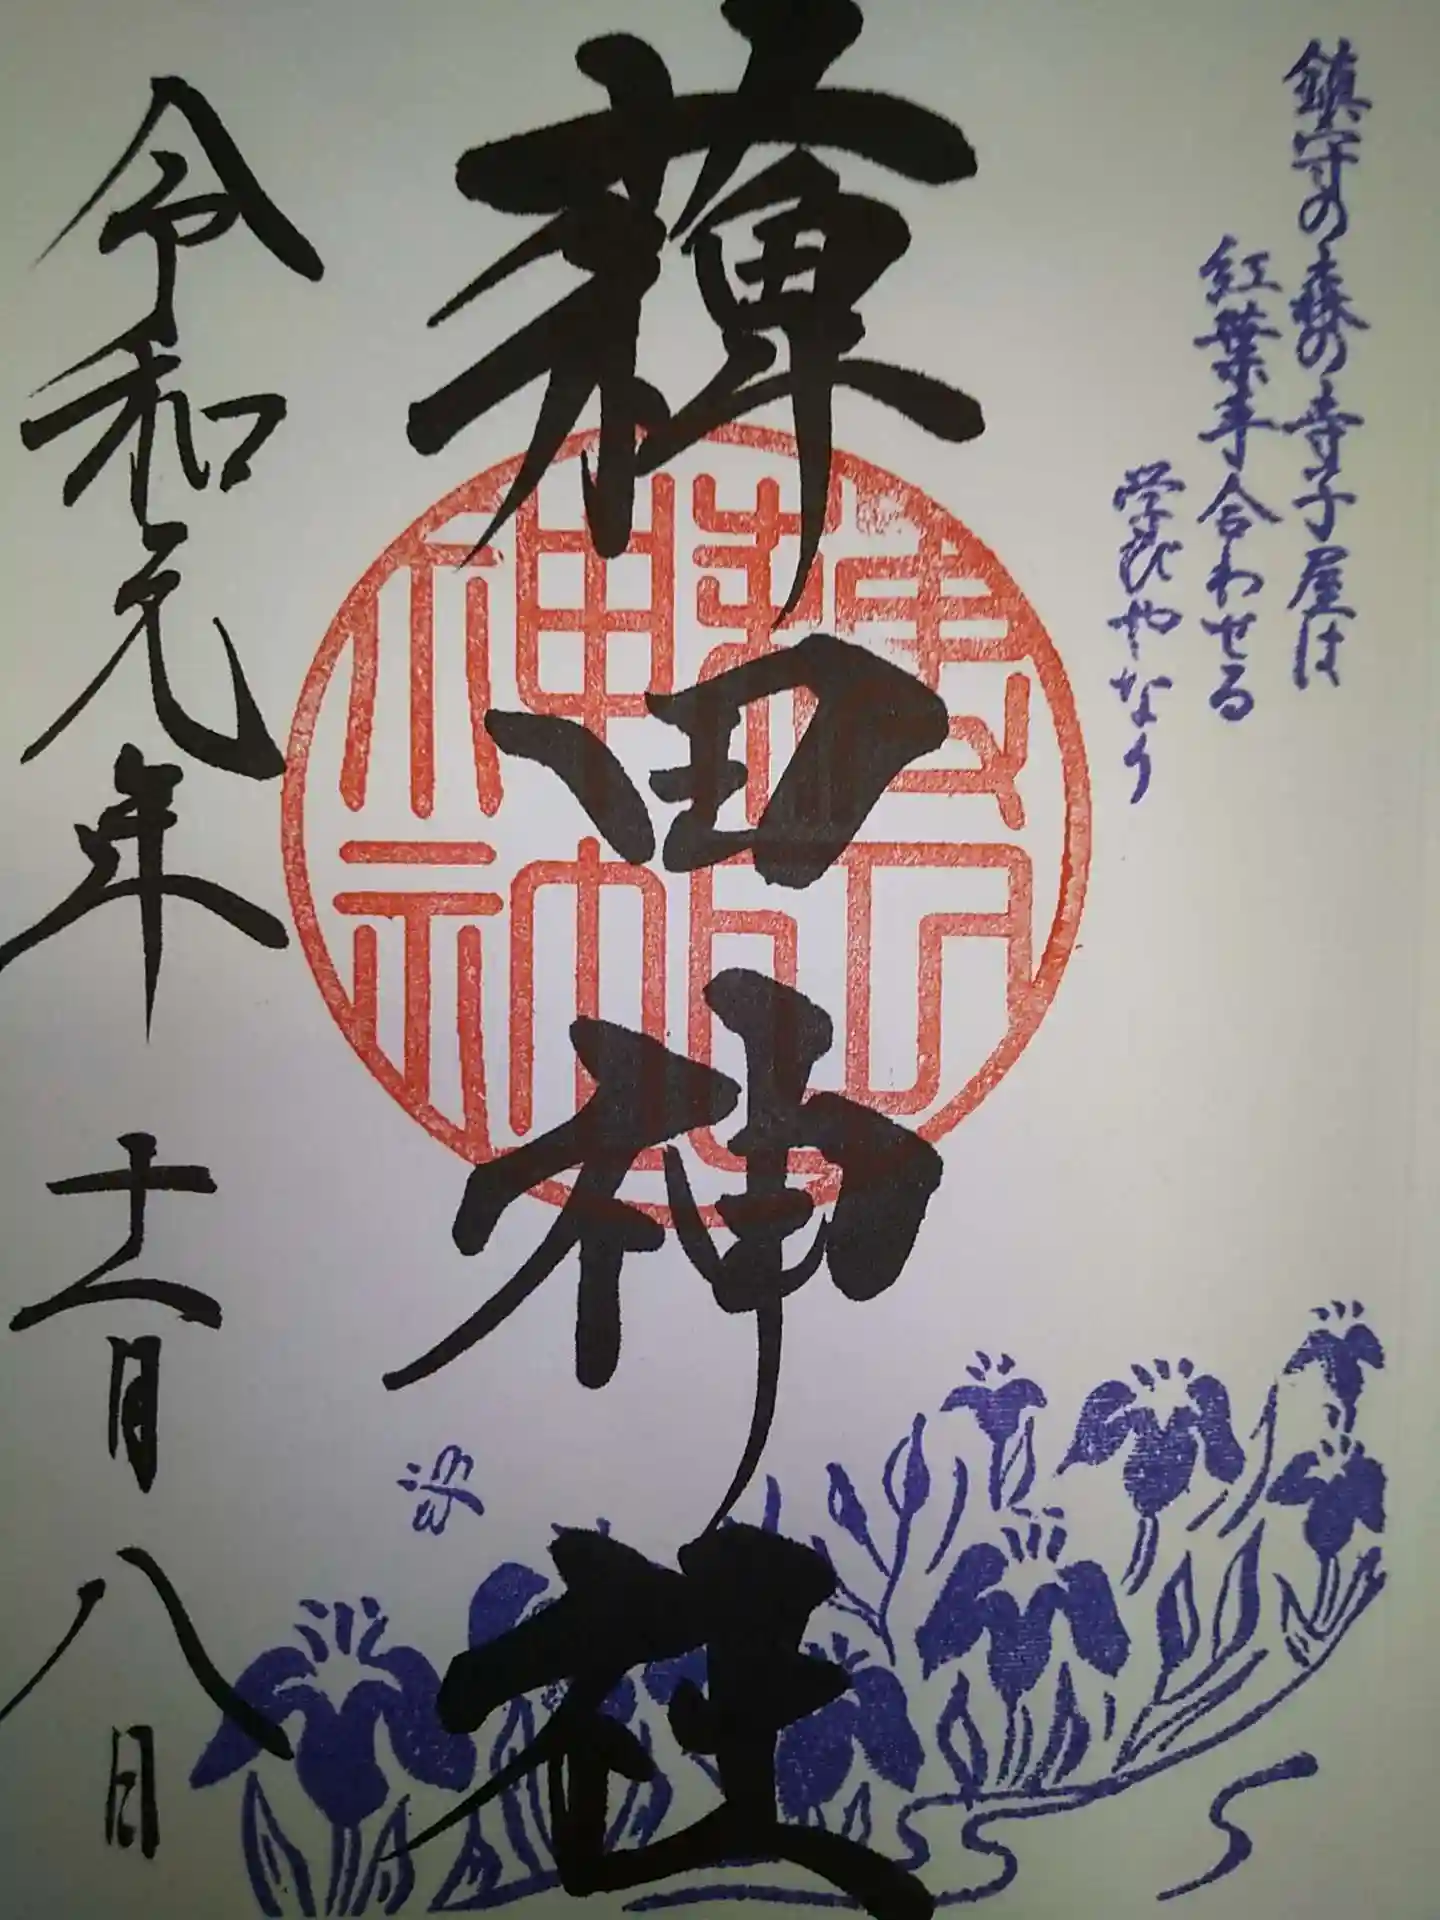 鎮守の森の寺子屋は
紅葉手合わせる
学びやなり
薭田神社
令和元年十二月八日